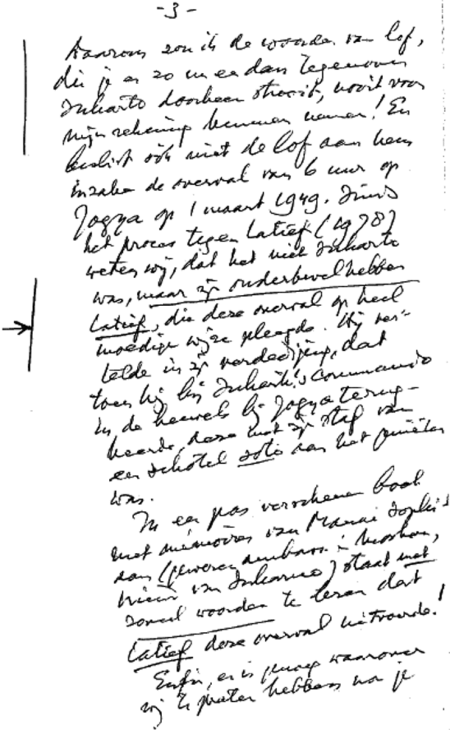 -3-
Daarom zou ik de woorden van lof,
die je er zo nu en dan tegenover
Suharto doorheen strooit, nooit voor
mijn rekening kunnen nemen! En
beslist óók niet de lof aan hem
inzake de overval van 6 uur op
Jogya op 1 maart 1949. Sinds
het proces tegen Latief (1978)
weten wij, dat het niet Suharto
was, maar zijn onderbevelhebber
Latief, die deze overval op heel
moedige wijze pleegde. Hij ver-
telde in zijn verdediging, dat
toen hij bij Suharto's commando
in de heuvels bij Jogya terug-
keerde, deze met zijn staf van
een schotel soto aan het genieten
was.
In een pas verschenen boek
met mémoires van Manai Sophi
aan (gewezen ambass. in Moskou,
vriend van Sukarno) staat met
zoveel woorden te lezen dat
Latief deze overval uitvoerde!
Enfin, er is genoeg waarover
wij te praten hebben